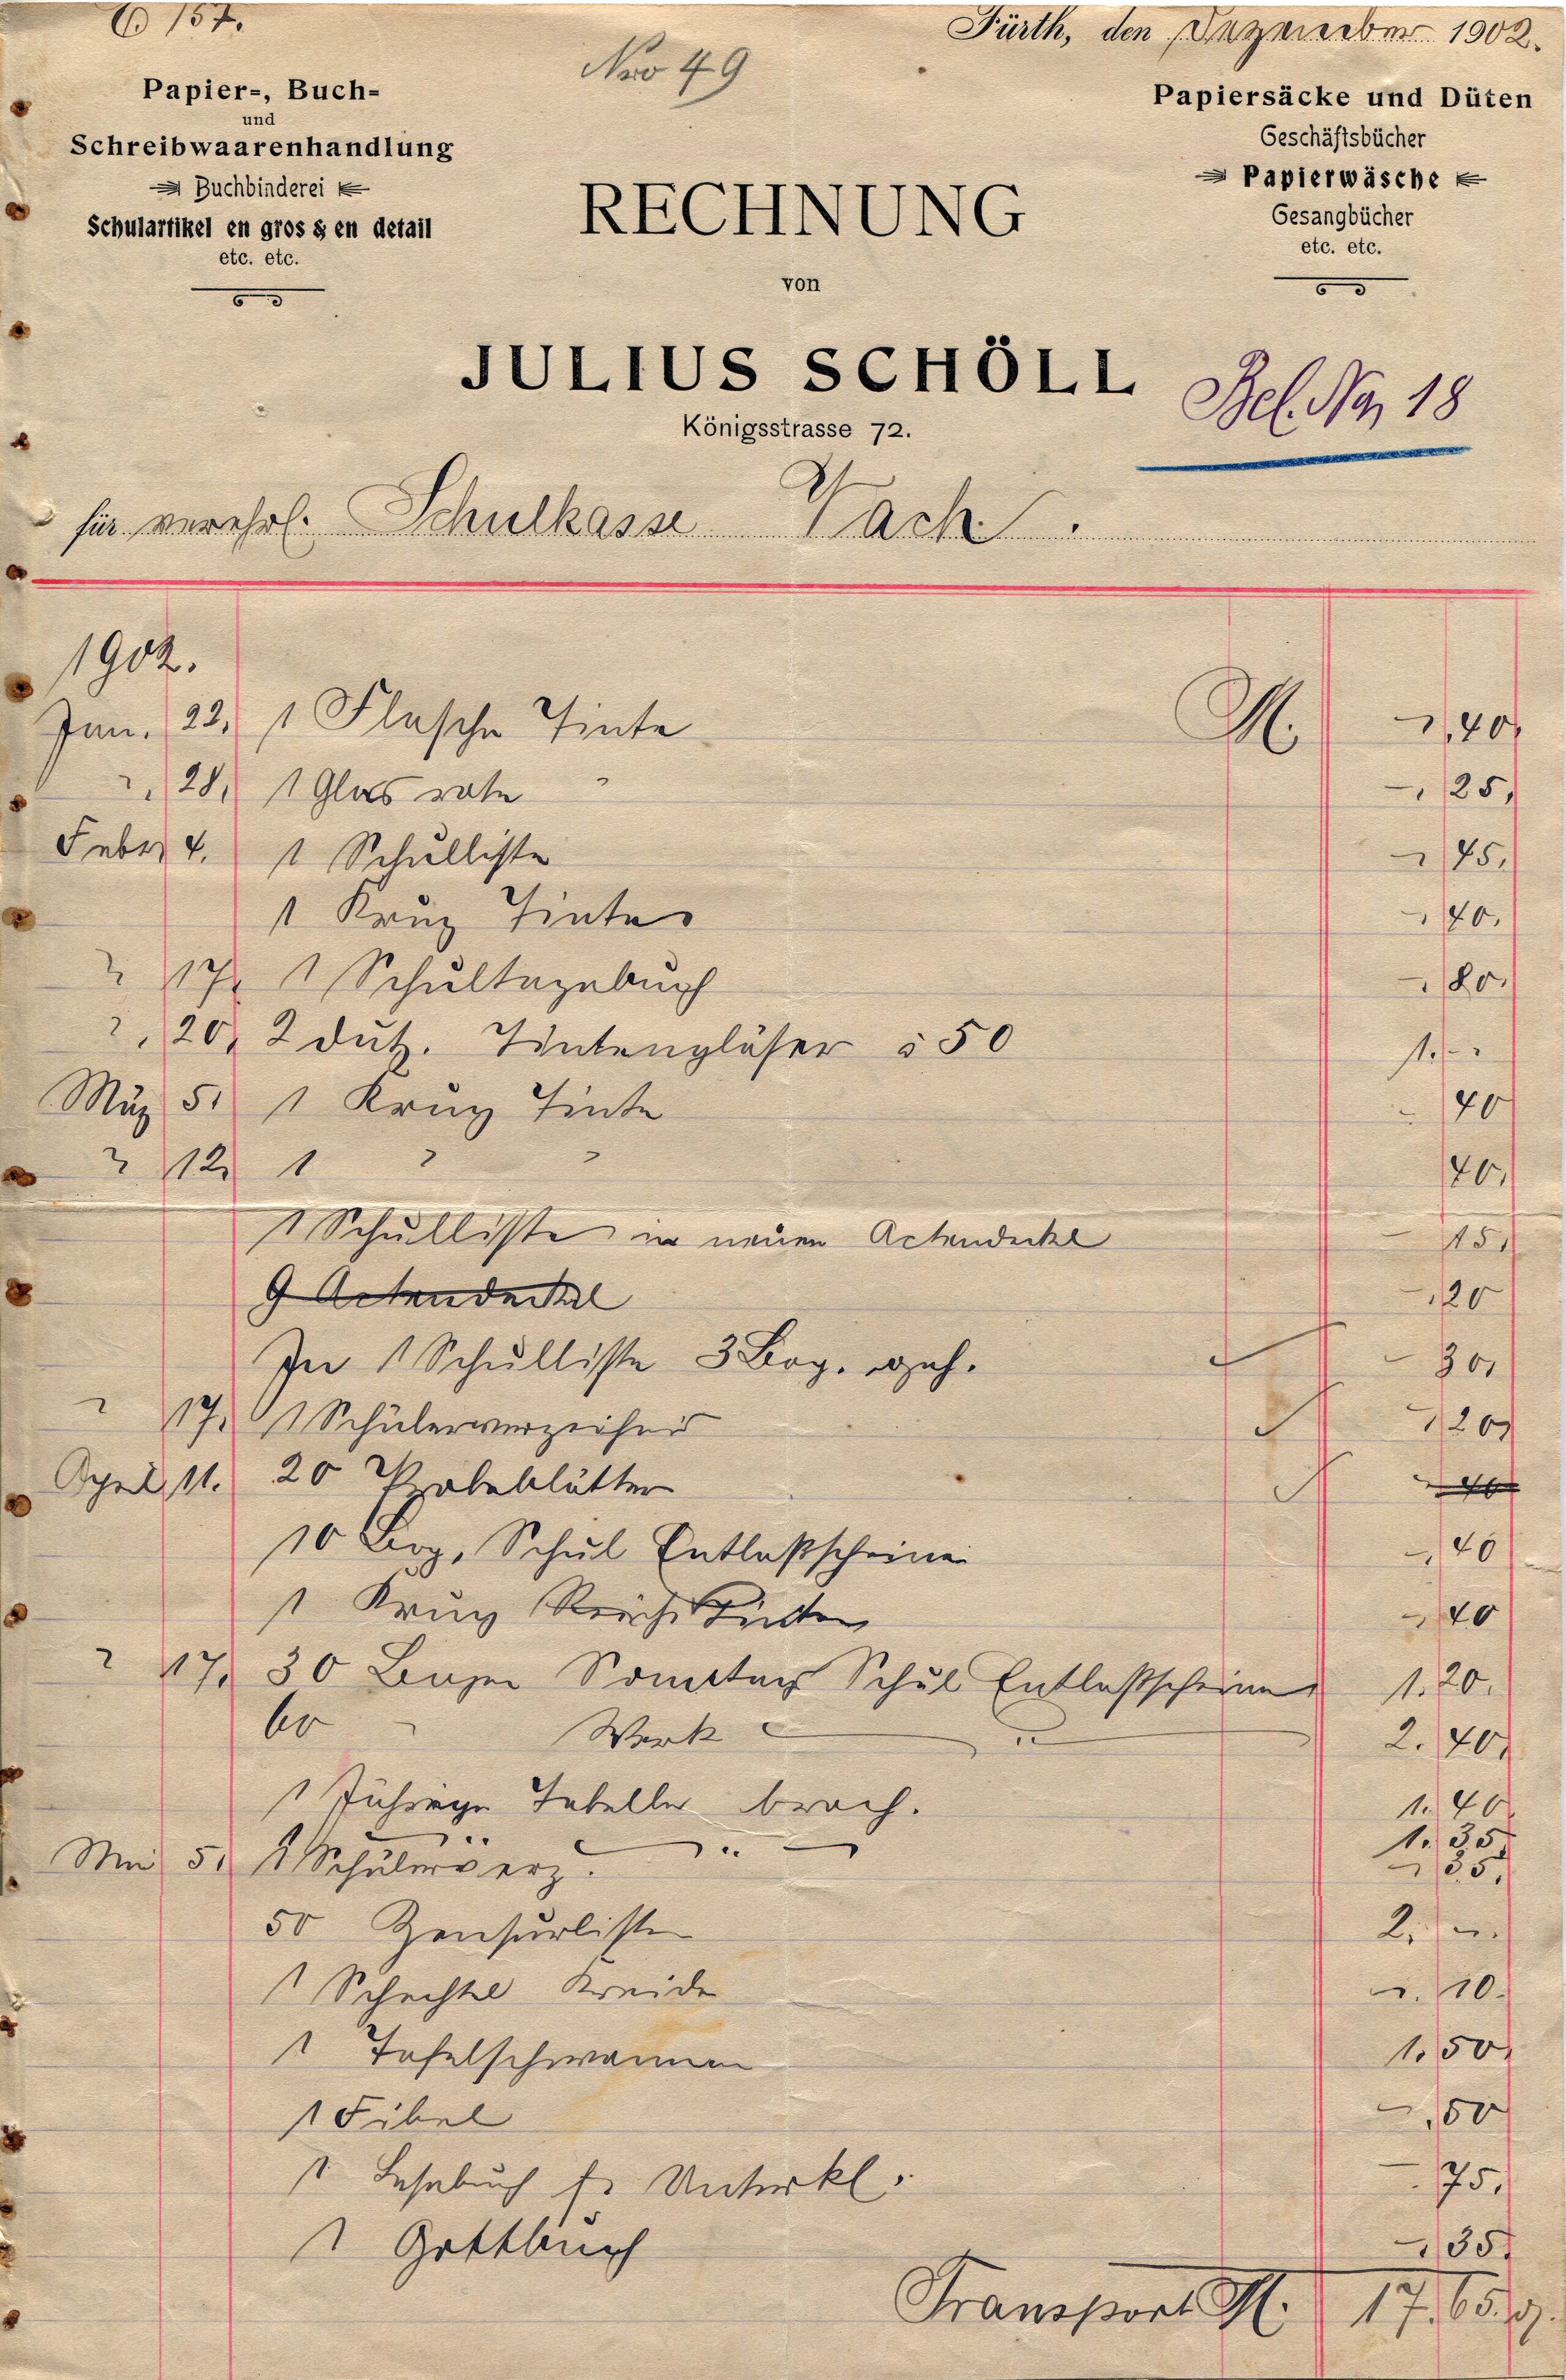 157.
Nro 49
Fürth, den Dezember 1902.
Papier-, Buch-
und
Schreibwaarenhandlung
Buchbinderei
Schulartikel en gros & en detail
etc. etc.
Papiersäcke und Düten
Geschäftsbücher
Papierwäsche
Gesangbücher
etc. etc.
RECHNUNG
von
JULIUS SCHÖLL
Königsstrasse 72.
Bel. No, 18
für verehrl. Schulkasse Vach.
1902.
Jan. 22, 1 Flasche Tinte M. -,40,
" 28, 1 Glas rote " -,25,
Febr. 4. 1 Schulliste -,45,
1 Krug Tinte -,40,
" 17, 1 Schultagebuch -,80,
" 20, 2 Dutz. Tintengläser à 50 1.-
März 5, 1 Krug Tinte -,40
" 12, 1 " " 40,
1 Schulliste in neuen Actendeckel -15,
9 Actendeckel -,20
In 1 Schulliste 3 Bog. geh. - 30,
" 17, 1 Schülerverzeichnis -,20,
April 11. 20 Probeblätter
10 Bog. Schul Entlaßscheine -,40
1 Krug -,40
" 17, 30 Bogen Sonntags Schul Entlaßscheine 1.20.
60 " Werk " 2.40,
1 Jährige Tabelle broch. 1.40
1.35,
Mai 5, 1 Schülerverz. -,35,
50 Zensurliste 2,-
1 Schachtel Kreide -.10.
1 Tafelschwamm 1.50,
1 Fibel -,50
1 Lesebuch f. Unterkl. -75,
1 -,35,
Transport M. 17,65.